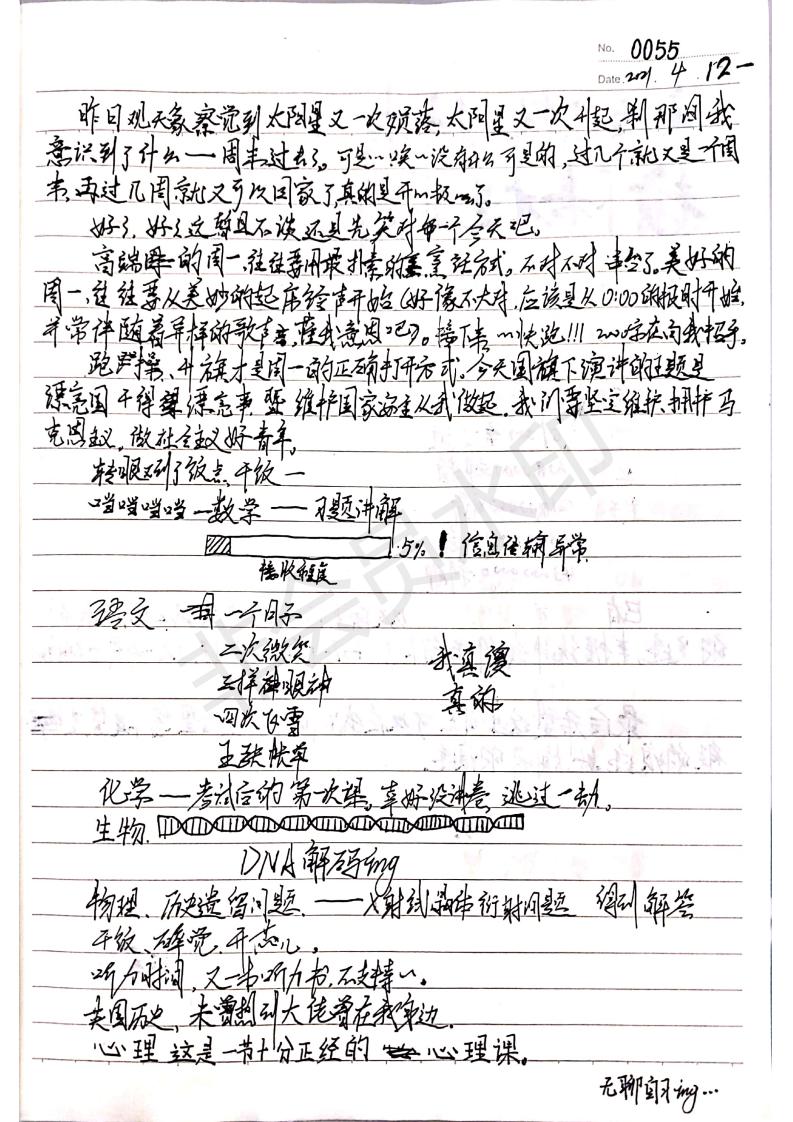 No. 0055
Date. 2021. 4. 12 一
昨日观天象察觉到太阳星又一次殒落,太阳星又一次升起,刹那间我
意识到了什么——周末过去了。可是…唉~没有什么可是的,过几个就又是一个周
末,再过几周就又可以回家了,真的是开心极了。
好了,好了这暂且不谈还是先笑对每一个今天吧。
高端的周一,往往要用最朴素的方式。不对不对串台了。美好的
周一,往往要从美妙的起床铃声开始(好像不大对,应该是从0:00的报时开始,
并常伴随着异样的歌声,懂我意思吧)。接下来~~快跑!!! 200字在向我招手。
跑操、升旗才是周一的正确打开方式。今天国旗下演讲的主题是
漂亮国干得漂亮事 维护国家安全从我做起,我们要坚定维护、拥护马
克思主义,做社会主义好青年。
转眼又到了饭点,干饭一
噹噹噹噹—数学——习题讲解
5%! 信息传输异常
接收程度
语文. 一个日子
二次微笑
三样神眼神
四次飞雪
五缺帐单
我真傻
真的
化学——考试后的第一次课,幸好没讲卷,逃过一劫。
生物.
DNA解码ing
物理、历史遗留问题——X射线晶体衍射问题 得到解答
干饭、睡觉、开志儿。
听力时间,又一书听力书,不支持~。
英国历史,未曾想到大佬曾在我身边.
心理 这是一节十分正经的心理课。
无聊自习ing…
非会员水印